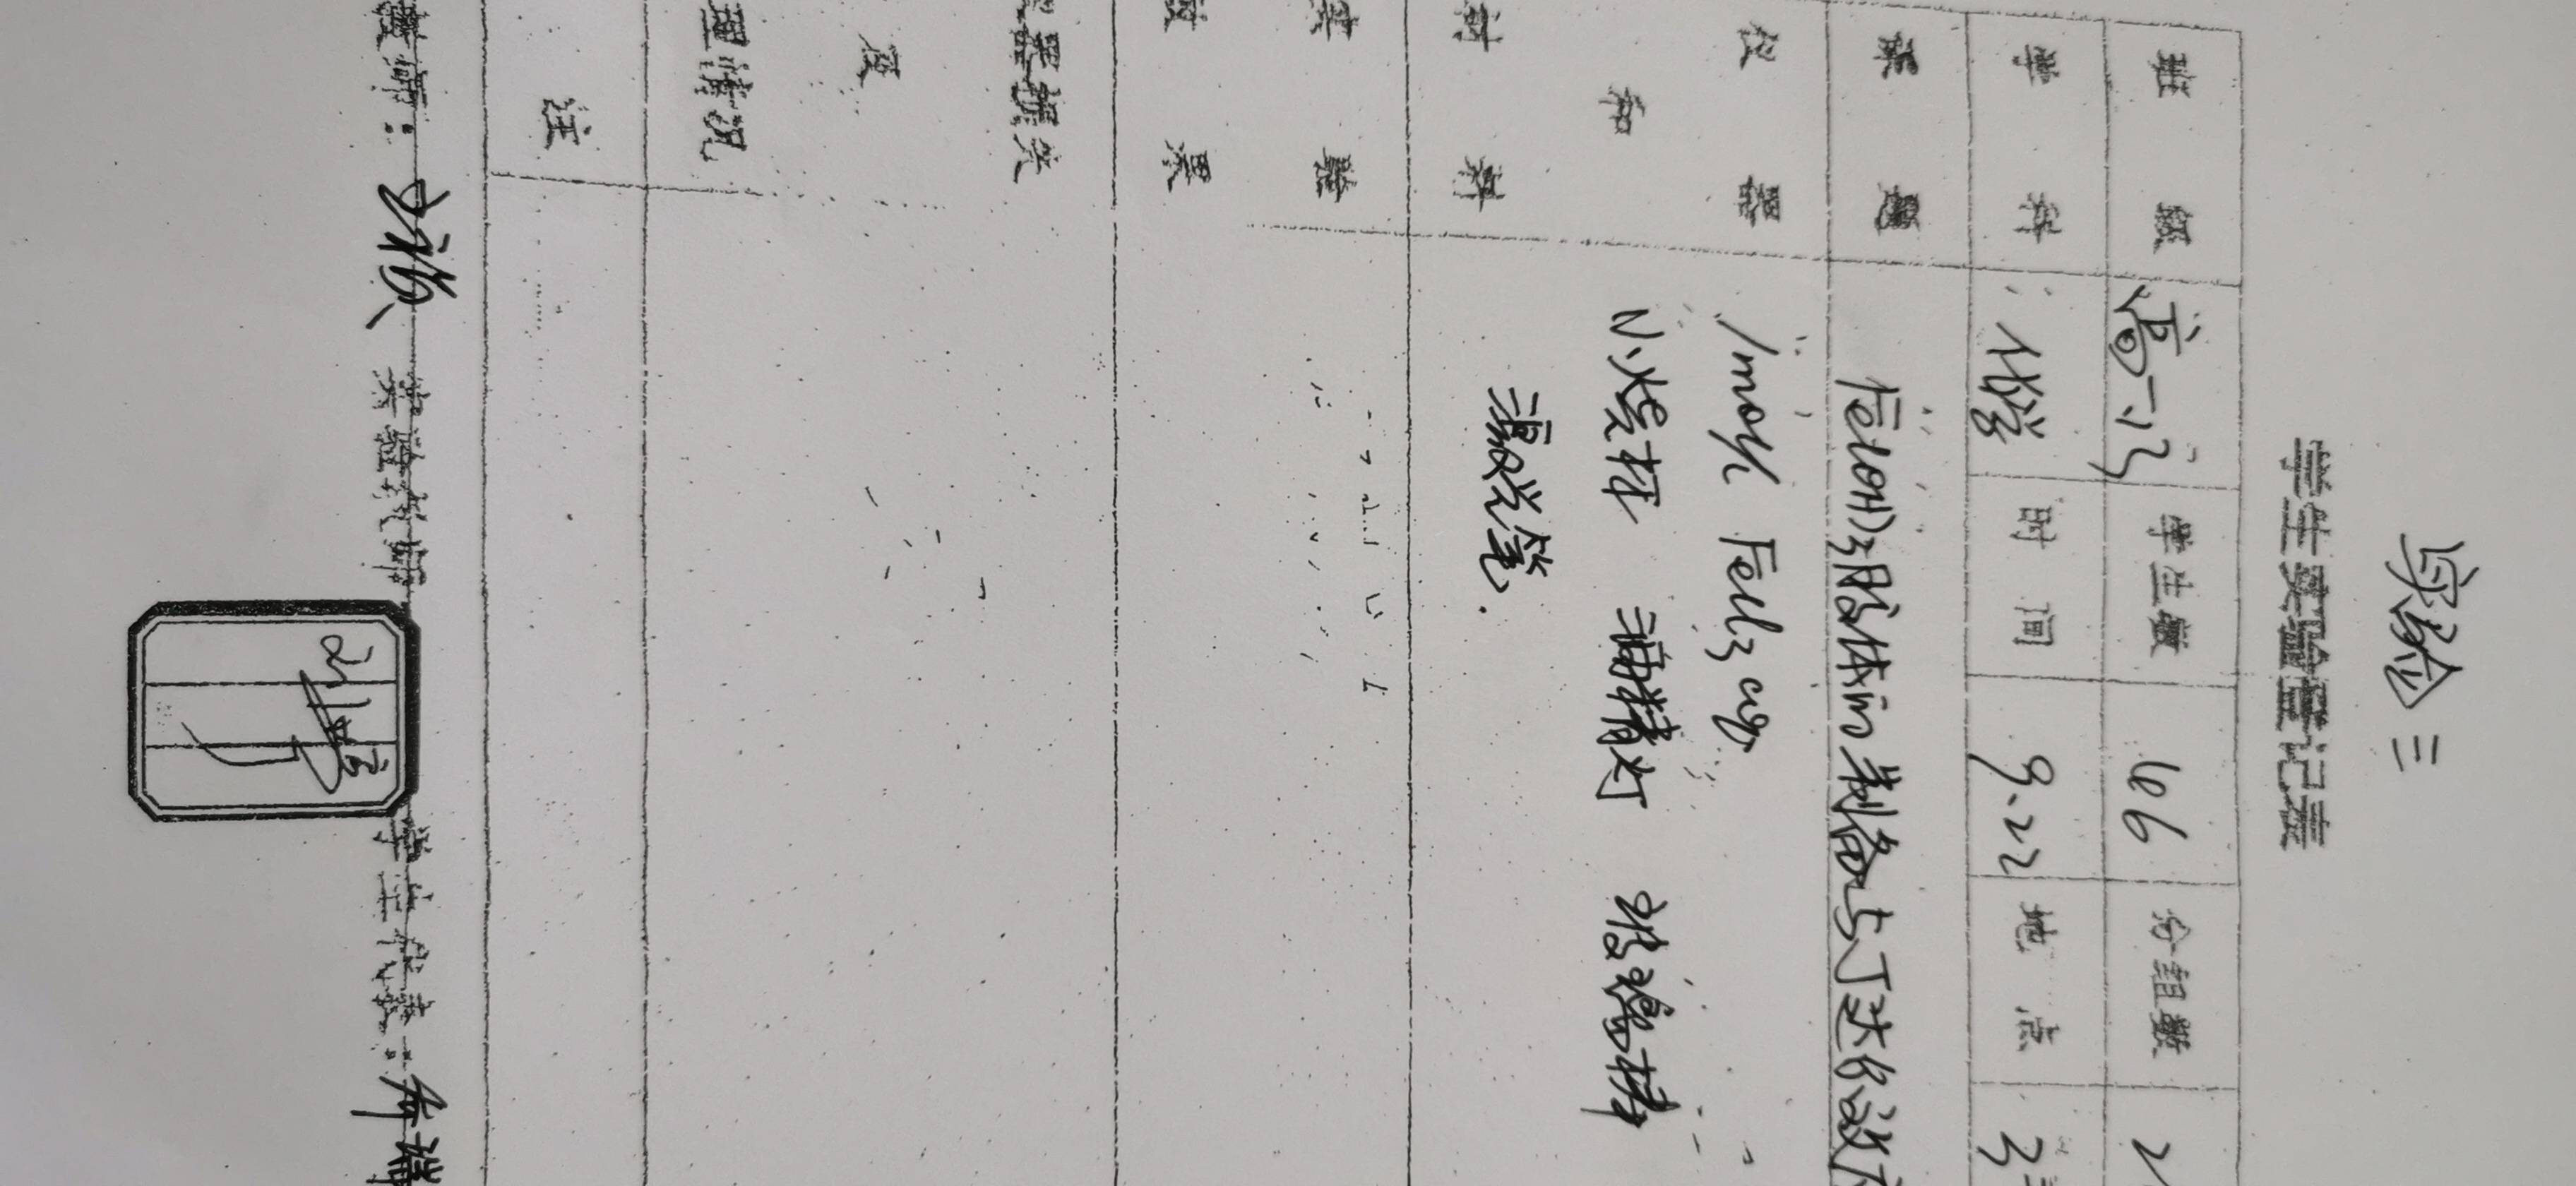 实验三
学生实验登记表
班 级 高一 学生数 46 分组数
学 科 化学 时 间 9.22 地 点
课 题 Fe(OH)3胶体的制备与丁达尔效应
仪 器 1mol/L FeCl3 aq
和 小烧杯 酒精灯 玻璃棒
材 料 激光笔.
实 验
效 果
仪器损失
及
处理情况
注
教师: 实验教师 学生代表: